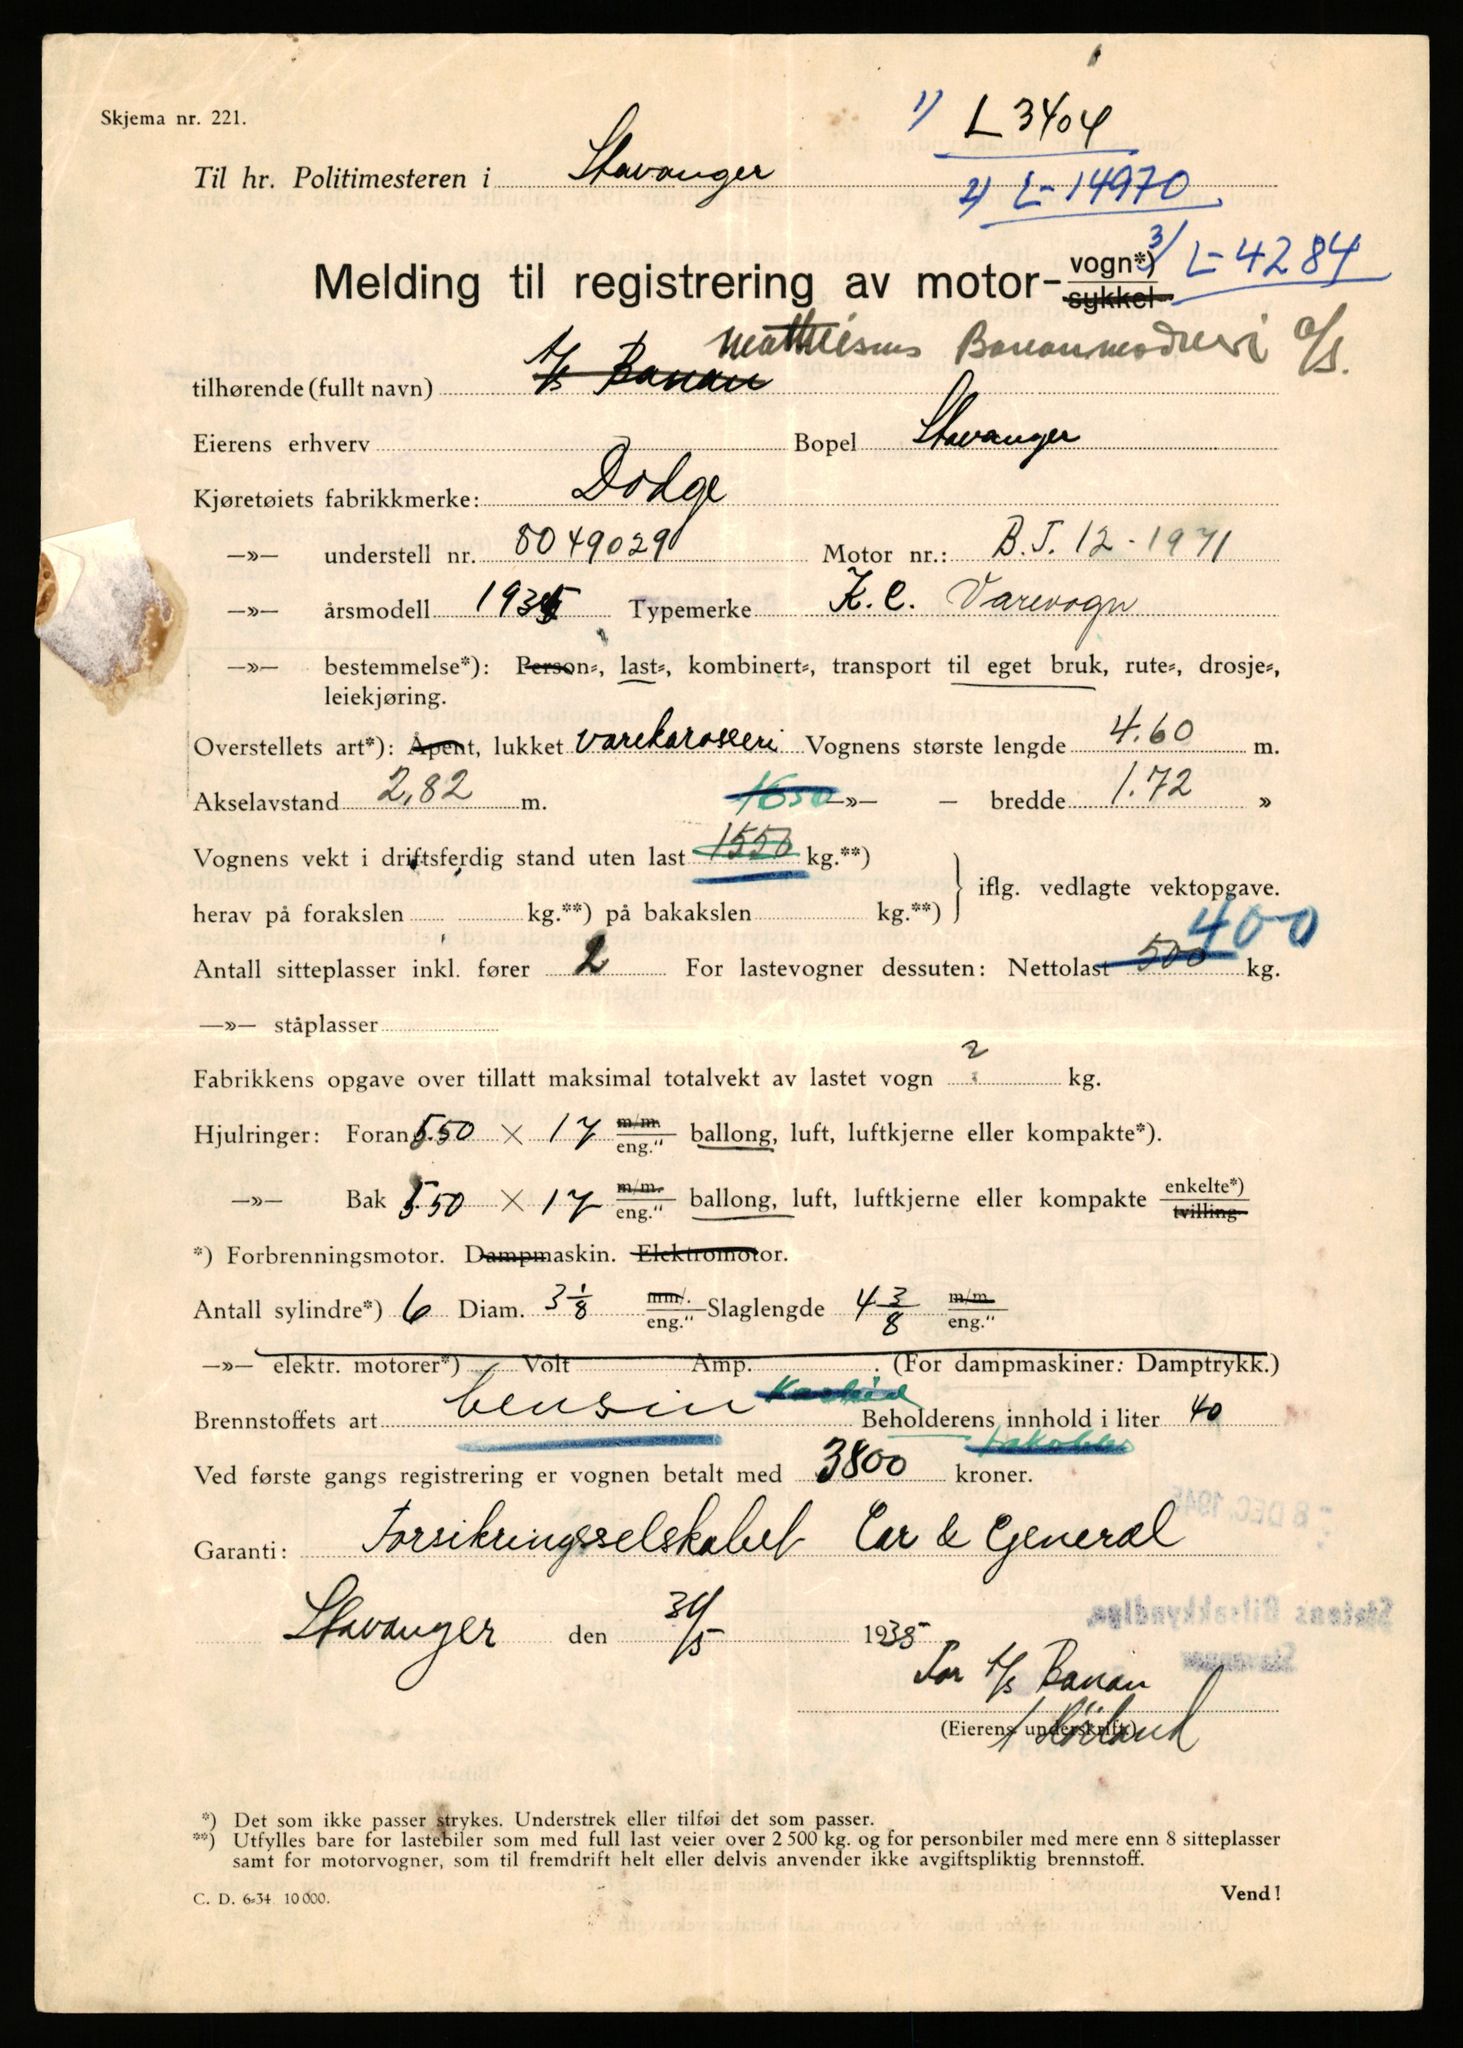 Skjema nr. 221.
1) L 3404
Til hr. Politimesteren i Stavanger
2) L-14970
Melding til registrering av motor- vogn*) sykkel
3/ L-4284
Bananmodneri A/S.
tilhørende (fullt navn) A/S Banan
Eierens erhverv Bopel Stavanger
Kjøretøiets fabrikkmerke: Dodge
—»— understell nr. 8049029 Motor nr.: B.T. 12-1971
—»— årsmodell 1935 Typemerke K.C. Varevogn
—»— bestemmelse*): Person-, last-, kombinert-, transport til eget bruk, rute-, drosje-,
leiekjøring.
Overstellets art*): Åpent, lukket varekarosseri Vognens største lengde 4.60 m.
Akselavstand 2,82 m. 1650 —»— — bredde 1.72 »
Vognens vekt i driftsferdig stand uten last 1550 kg.**)
iflg. vedlagte vektopgave.
herav på forakslen kg.**) på bakakslen kg.**)
400
Antall sitteplasser inkl. fører 2 For lastevogner dessuten: Nettolast 500 kg.
—»— ståplasser
Fabrikkens opgave over tillatt maksimal totalvekt av lastet vogn ? kg.
Hjulringer: Foran 5.50 × 17 m/m. eng." ballong, luft, luftkjerne eller kompakte*).
—»— Bak 5.50 × 17 m/m. eng." ballong, luft, luftkjerne eller kompakte enkelte*) tvilling
*) Forbrenningsmotor. Dampmaskin. Elektromotor.
Antall sylindre*) 6 Diam. 3 1/8 mm/. eng." Slaglengde 4 3/8 m/m. eng."
—»— elektr. motorer*) Volt Amp. . (For dampmaskiner: Damptrykk.)
Brennstoffets art bensin Beholderens innhold i liter 40
Ved første gangs registrering er vognen betalt med 3800 kroner.
Garanti: Forsikringsselskabet Car & General
Stavanger den 31/5 1935
For A/S Banan
(Eierens underskrift)
*) Det som ikke passer strykes. Understrek eller tilføi det som passer.
**) Utfylles bare for lastebiler som med full last veier over 2 500 kg. og for personbiler med mere enn 8 sitteplasser
samt for motorvogner, som til fremdrift helt eller delvis anvender ikke avgiftspliktig brennstoff.
C. D. 6-34 10 000.
Vend!